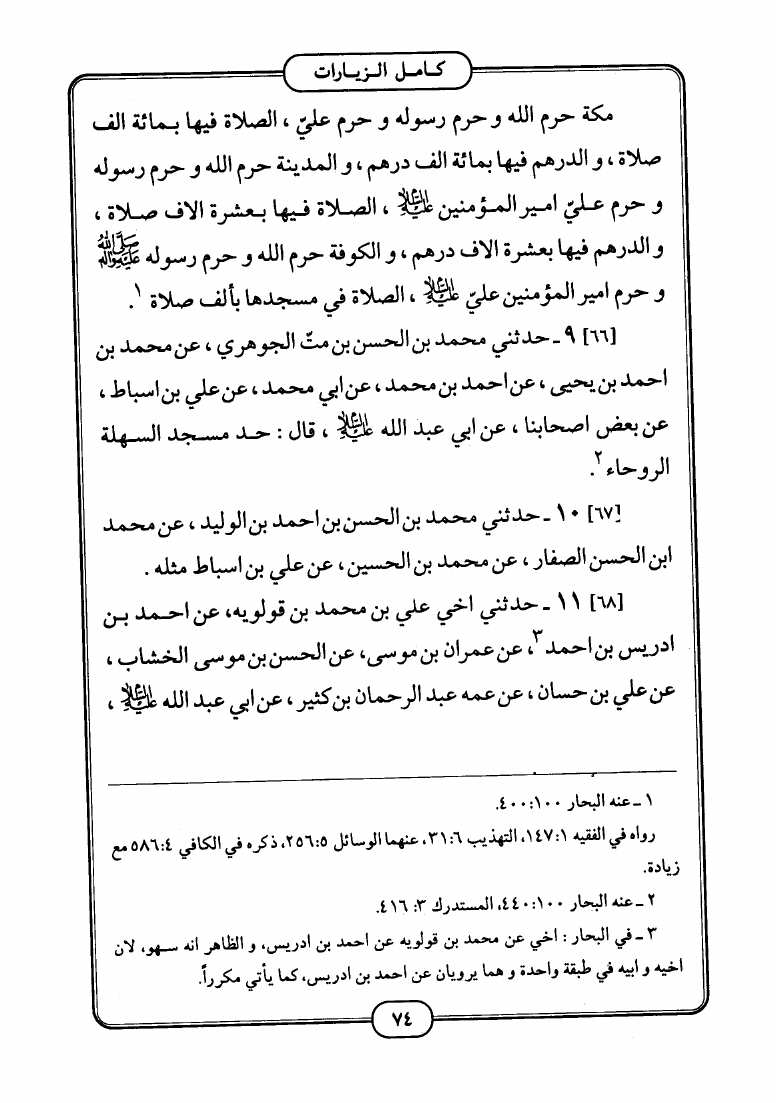 كامل الزيارات
مكة حرم الله و حرم رسوله و حرم عليّ ، الصلاة فيها بمائة الف
صلاة ، و الدرهم فيها بمائة الف درهم ، و المدينة حرم الله و حرم رسوله
و حرم عليّ امير المؤمنين عليه السلام ، الصلاة فيها بعشرة الاف صلاة ،
و الدرهم فيها بعشرة الاف درهم ، و الكوفة حرم الله و حرم رسوله صلى الله عليه وآله
و حرم امير المؤمنين عليّ عليه السلام ، الصلاة في مسجدها بألف صلاة ١.
[٦٦] ٩ ـ حدثني محمد بن الحسن بن متّ الجوهري ، عن محمد بن
احمد بن يحيى ، عن احمد بن محمد ، عن ابي محمد ، عن علي بن اسباط ،
عن بعض اصحابنا ، عن ابي عبد الله عليه السلام ، قال : حد مسجد السهلة
الروحاء ٢.
[٦٧] ١٠ ـ حدثني محمد بن الحسن بن احمد بن الوليد ، عن محمد
ابن الحسن الصفار ، عن محمد بن الحسين ، عن علي بن اسباط مثله .
[٦٨] ١١ ـ حدثني اخي علي بن محمد بن قولويه، عن احمد بن
ادريس بن احمد ٣، عن عمران بن موسى، عن الحسن بن موسى الخشاب ،
عن علي بن حسان ، عن عمه عبد الرحمان بن كثير ، عن ابي عبد الله عليه السلام ،
١ ـ عنه البحار ١٠٠:٤٠٠.
رواه في الفقيه ١:١٤٧، التهذيب ٦:٣١، عنهما الوسائل ٥:٢٥٦، ذكره في الكافي ٤:٥٨٦ مع
زيادة.
٢ ـ عنه البحار ١٠٠:٤٤٠، المستدرك ٣: ٤١٦.
٣ ـ في البحار : اخي عن محمد بن قولويه عن احمد بن ادريس، و الظاهر انه سهو، لان
اخيه و ابيه في طبقة واحدة و هما يرويان عن احمد بن ادريس، كما يأتي مكرراً.
٧٤